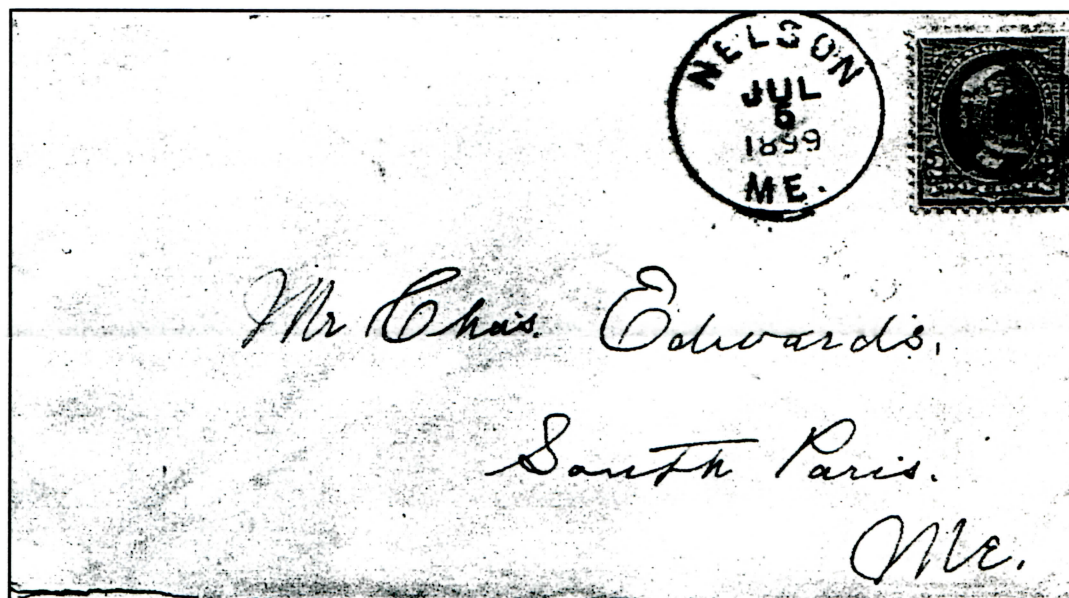 NELSON
JUL
6
1899
ME.
Mr Chas. Edwards,
South Paris.
Me.